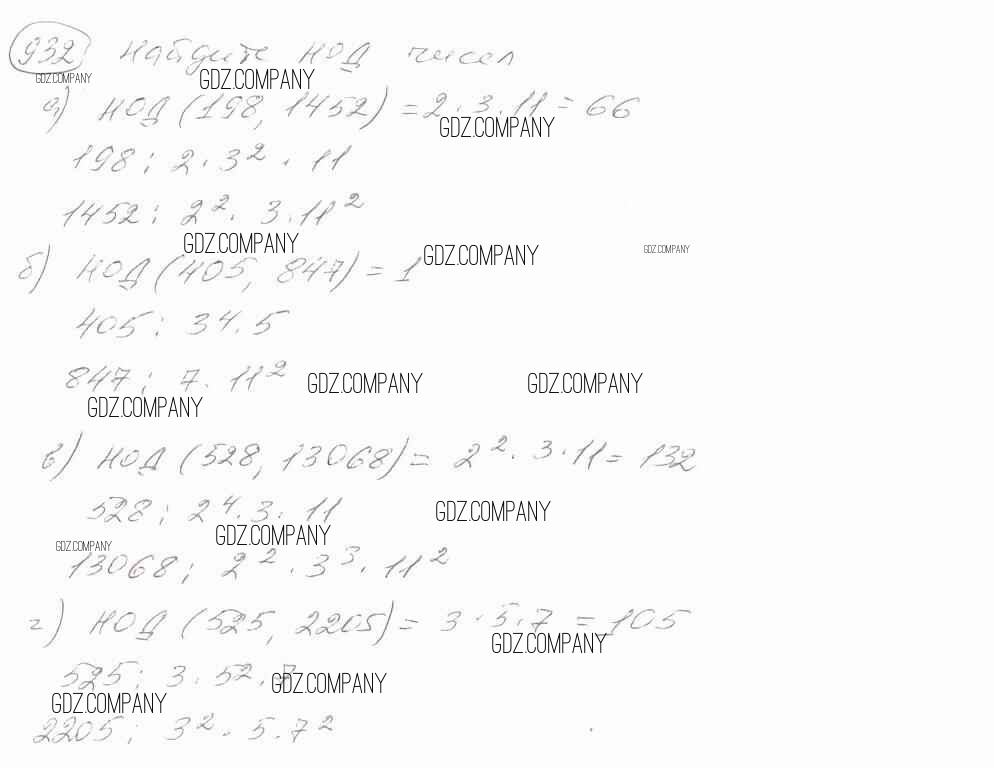 932 Найдите НОД чисел
GDZ.COMPANY GDZ.COMPANY
а) НОД (198, 1452) = 2 · 3 · 11 = 66
GDZ.COMPANY
198; 2 · 3² · 11
1452; 2² · 3 · 11²
GDZ.COMPANY GDZ.COMPANY GDZ.COMPANY
б) НОД (405, 847) = 1
405; 34 · 5
847; 7 · 11²
GDZ.COMPANY GDZ.COMPANY
GDZ.COMPANY
в) НОД (528, 13068) = 2² · 3 · 11 = 132
528; 2⁴ · 3 · 11
GDZ.COMPANY
GDZ.COMPANY
GDZ.COMPANY
13068; 2² · 3³ · 11²
г) НОД (525, 2205) = 3 · 5 · 7 = 105
GDZ.COMPANY
525; 3 · 5² · 7
GDZ.COMPANY
GDZ.COMPANY
2205; 3² · 5 · 7²